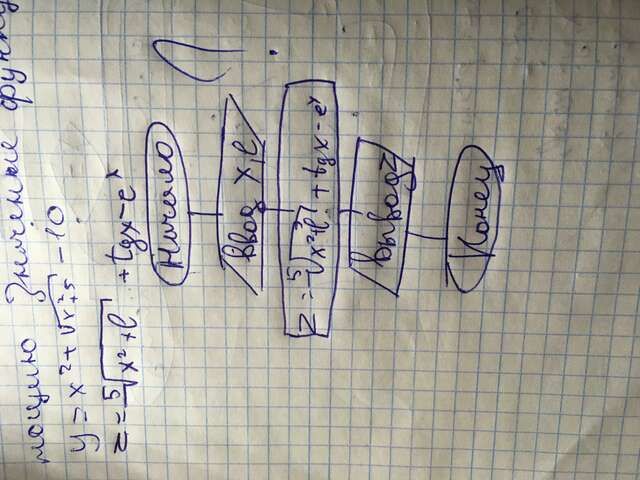 мощию Значение функц
y = x² + √r²+5 - 10
z = ⁵√x²+b + tgx - eˣ
Начало
Ввод x, b
z = ⁵√x²+b + tgx - eˣ
Вывод z
Конец